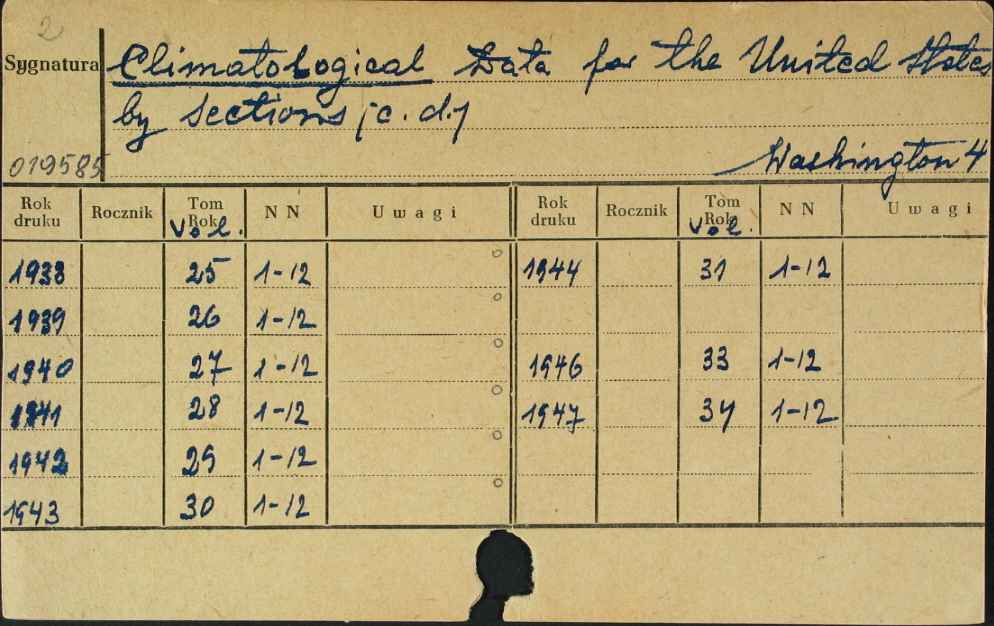 2
Sygnatura
Climatological Data for the United States
by sections (c.d.)
019585
Washington 4
Rok druku Rocznik Tom Rok Vol. NN Uwagi Rok druku Rocznik Tom Rok Vol. NN Uwagi
1938 25 1-12 1944 31 1-12
1939 26 1-12
1940 27 1-12 1946 33 1-12
1941 28 1-12 1947 34 1-12
1942 29 1-12
1943 30 1-12